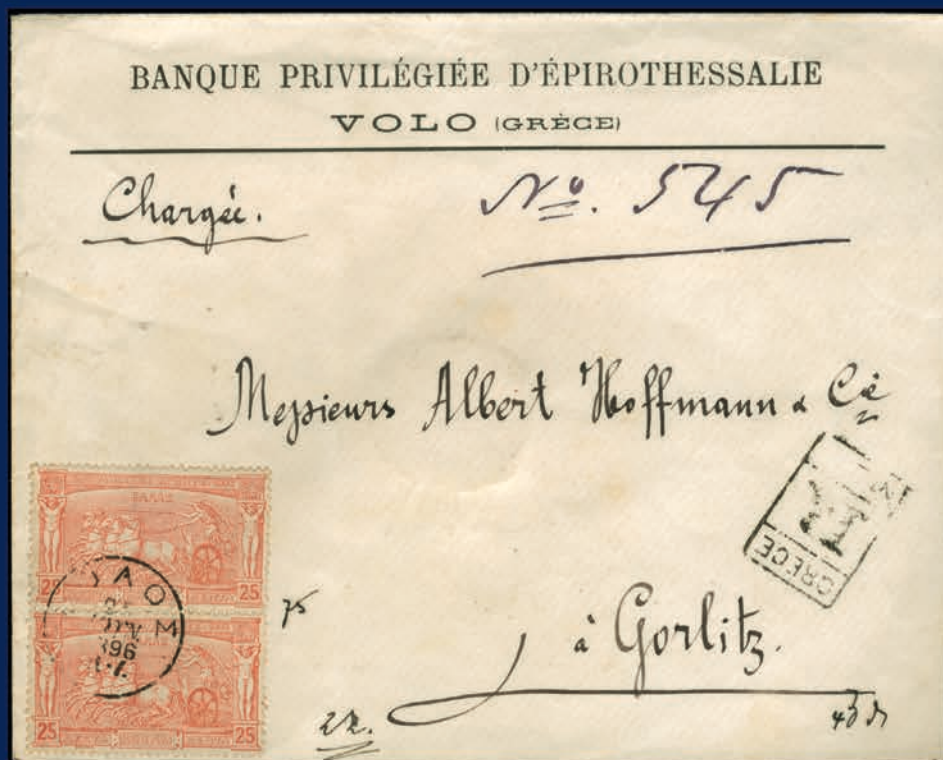 BANQUE PRIVILÉGIÉE D'ÉPIROTHESSALIE
VOLO (GRÈCE)
Chargée.
Nº. 545
Messieurs Albert Hoffmann & Cie
GRÈCE
ΕΛΛΑΣ
25 25
à Gorlitz.
896
25 25
22.